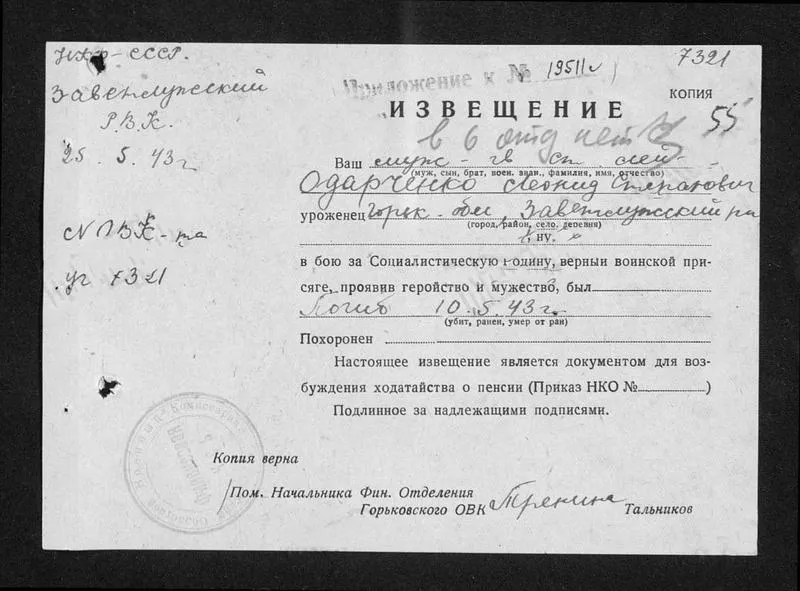 НКО-СССР.
Заветлужский
Р.В.К.
25.5.43г
7321
Приложение к № 19511с
КОПИЯ
ИЗВЕЩЕНИЕ
55
в 6 отд нет
Ваш муж - гв ст. лей-
(муж, сын, брат, воен. зван., фамилия, имя, отчество)
Одарченко Леонид Степанович
уроженец Горьк-обл, Заветлужский р-на
(город, район, село, деревня)
в бою за Социалистическую родину, верный воинской при-
сяге, проявив геройство и мужество, был
Погиб 10.5.43г.
(убит, ранен, умер от ран)
Похоронен
Настоящее извещение является документом для воз-
буждения ходатайства о пенсии (Приказ НКО № )
Подлинное за надлежащими подписями.
7321
Копия верна
Пом. Начальника Фин. Отделения
Горьковского ОВК Тальников